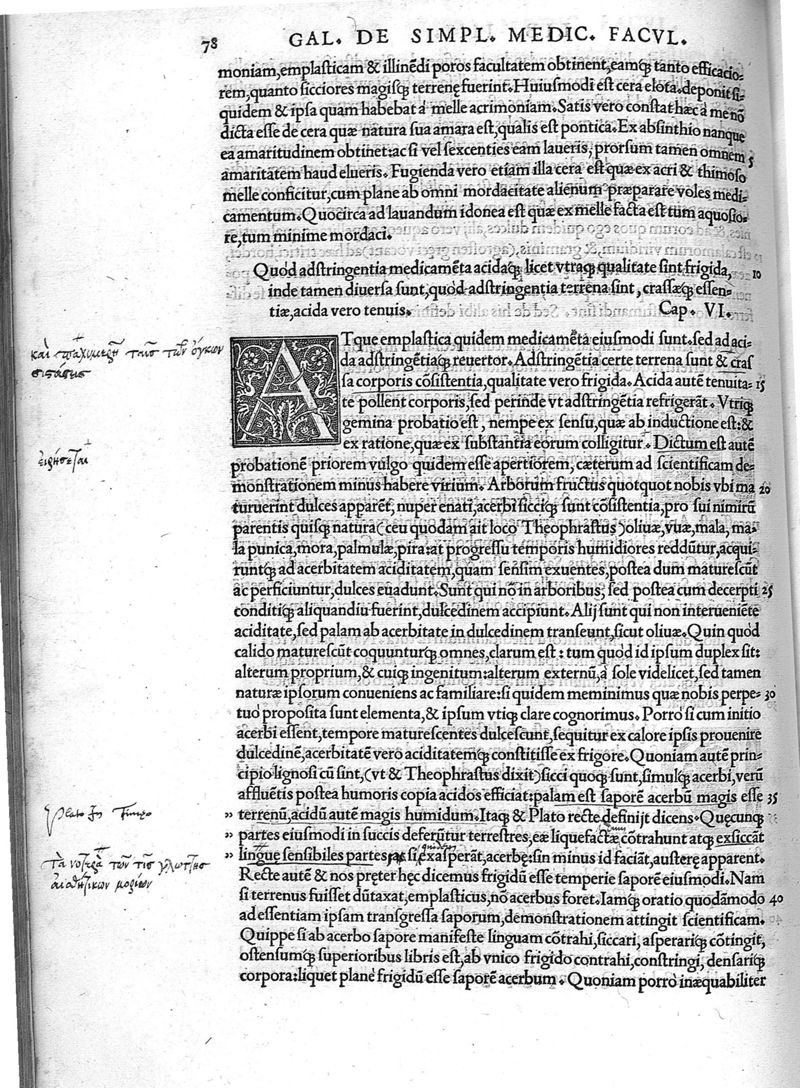 78 GAL. DE SIMPL. MEDIC. FACVL.
moniam,emplasticam & illinēdi poros facultatem obtinent,eamq́; tanto efficacio-
rem,quanto sicciores magisq́; terrenę fuerint. Huiusmodi est cera elota.deponit si-
quidem & ipsa quam habebat á melle acrimoniam. Satis vero constat hæc à me nō
dicta esse de cera quæ natura sua amara est,qualis est pontica. Ex absinthio nanque
ea amaritudinem obtinet:ac si vel sexcenties eam laueris, prorsum tamen omnem 5
amaritatem haud elueris. Fugienda vero etiam illa cera est quæ ex acri & thimoso
melle conficitur,cum plane ab omni mordacitate alienum præparare voles medi-
camentum. Quocirca ad lauandum idonea est quæ ex melle facta est tum aquosio-
re,tum minime mordaci.
Quòd adstringentia medicamēta acidaq́; licet vtraq; qualitate sint frigida, 10
inde tamen diuersa sunt,quòd adstringentia terrena sint, crassæq́; essen-
tiæ,acida vero tenuis. Cap. VI.
ATque emplastica quidem medicamēta eiusmodi sunt. sed ad aci-
da adstringētiaq́; reuertor. Adstringētia certe terrena sunt & cras
sa corporis cōsistentia,qualitate vero frigida. Acida autē tenuita- 15
te pollent corporis,sed perinde vt adstringētia refrigerāt. Vtriq́;
gemina probatio est, nempe ex sensu,quæ ab inductione est:&
ex ratione,quæ ex substantia eorum colligitur. Dictum est autē
probationē priorem vulgo quidem esse apertiorem,cæterum ad scientificam de-
monstrationem minus habere virium. Arborum fructus quotquot nobis vbi ma 20
turuerint dulces apparēt, nuper enati,acerbi siccíq; sunt cōsistentia,pro sui nimirū
parentis quisq; natura(ceu quodam ait loco Theophrastus)oliuæ,vuæ,mala, ma-
la punica,mora,palmulæ,pira:at progressu temporis humidiores reddūtur,acqui-
runtq́; ad acerbitatem aciditatem,quam sensim exuentes,postea dum maturescūt
ac perficiuntur,dulces euadunt. Sunt qui nō in arboribus, sed postea cum decerpti 25
conditíq; aliquandiu fuerint,dulcedinem accipiunt. Alij sunt qui non interueniēte
aciditate,sed palam ab acerbitate in dulcedinem transeunt,sicut oliuæ. Quin quòd
calido maturescūt coquunturq́; omnes,clarum est : tum quòd id ipsum duplex sit:
alterum proprium,& cuiq; ingenitum:alterum externū,à sole videlicet,sed tamen
naturæ ipsorum conueniens ac familiare:si quidem meminimus quæ nobis perpe- 30
tuò proposita sunt elementa,& ipsum vtiq; clare cognorimus. Porrò si cum initio
acerbi essent,tempore maturescentes dulcescunt,sequitur ex calore ipsis prouenire
dulcedinē,acerbitatē vero aciditatemq́; constitisse ex frigore. Quoniam autē prin-
cipio lignosi cū sint, (vt & Theophrastus dixit)sicci quoq; sunt,simulq́; acerbi,verū
affluētis postea humoris copia acidos efficiat:palam est saporē acerbū magis esse 35
” terrenū,acidū autē magis humidum. Itaq; & Plato recte definijt dicens. Quęcunq;
” partes eiusmodi in succis deferūtur terrestres,eæ liquefactæ cōtrahunt atq; exsiccāt
” linguę sensibiles partes, si exasperāt,acerbę:sin minus id faciāt,austerę apparent.
Recte autē & nos pręter hęc dicemus frigidū esse temperie saporē eiusmodi. Nam
si terrenus fuisset dūtaxat,emplasticus,nō acerbus foret. Iamq́; oratio quodāmodo 40
ad essentiam ipsam transgressa saporum,demonstrationem attingit scientificam.
Quippe si ab acerbo sapore manifeste linguam cōtrahi,siccari,asperariq́; cōtingit,
ostensumq́; superioribus libris est,ab vnico frigido contrahi,constringi, densariq́;
corpora:liquet planè frigidū esse saporē acerbum. Quoniam porrò inæquabiliter
καὶ παχυμερῆ ταῖς τῶν ὄγκων
συστάσεσι
εἰρήσεται
Plato in Timęo
τὰ